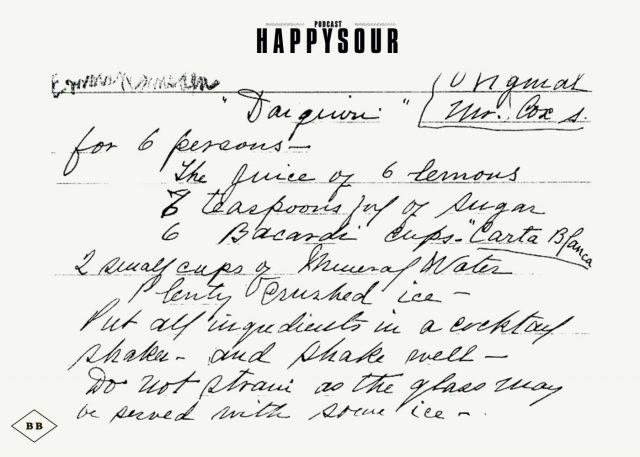 PODCAST
HAPPYSOUR
Original
"Daiquiri"
Mr. Cox's.
for 6 persons—
The juice of 6 lemons
6 teaspoons full of sugar
6 Bacardi cups - "Carta Blanca
2 small cups of Mineral Water
Plenty crushed ice—
Put all ingredients in a cocktail
shaker - and shake well—
Do not strain as the glass may
be served with some ice—.
BB